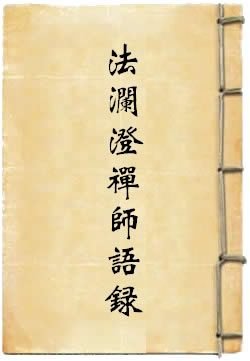 法瀾澄禪師語録